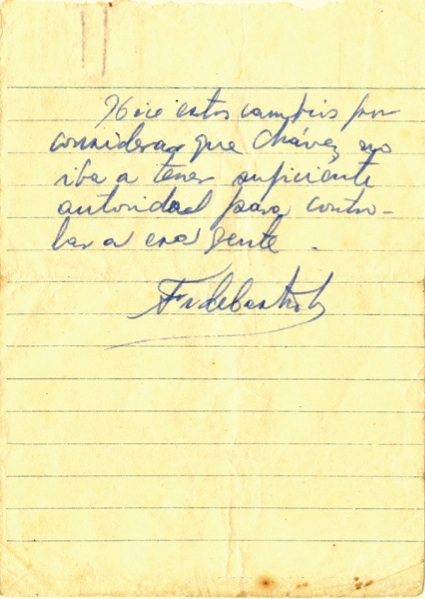 Hice estos cambios por
considerar que Chávez no
iba a tener suficiente
autoridad para contro-
lar a esa gente.
Fidel Castro